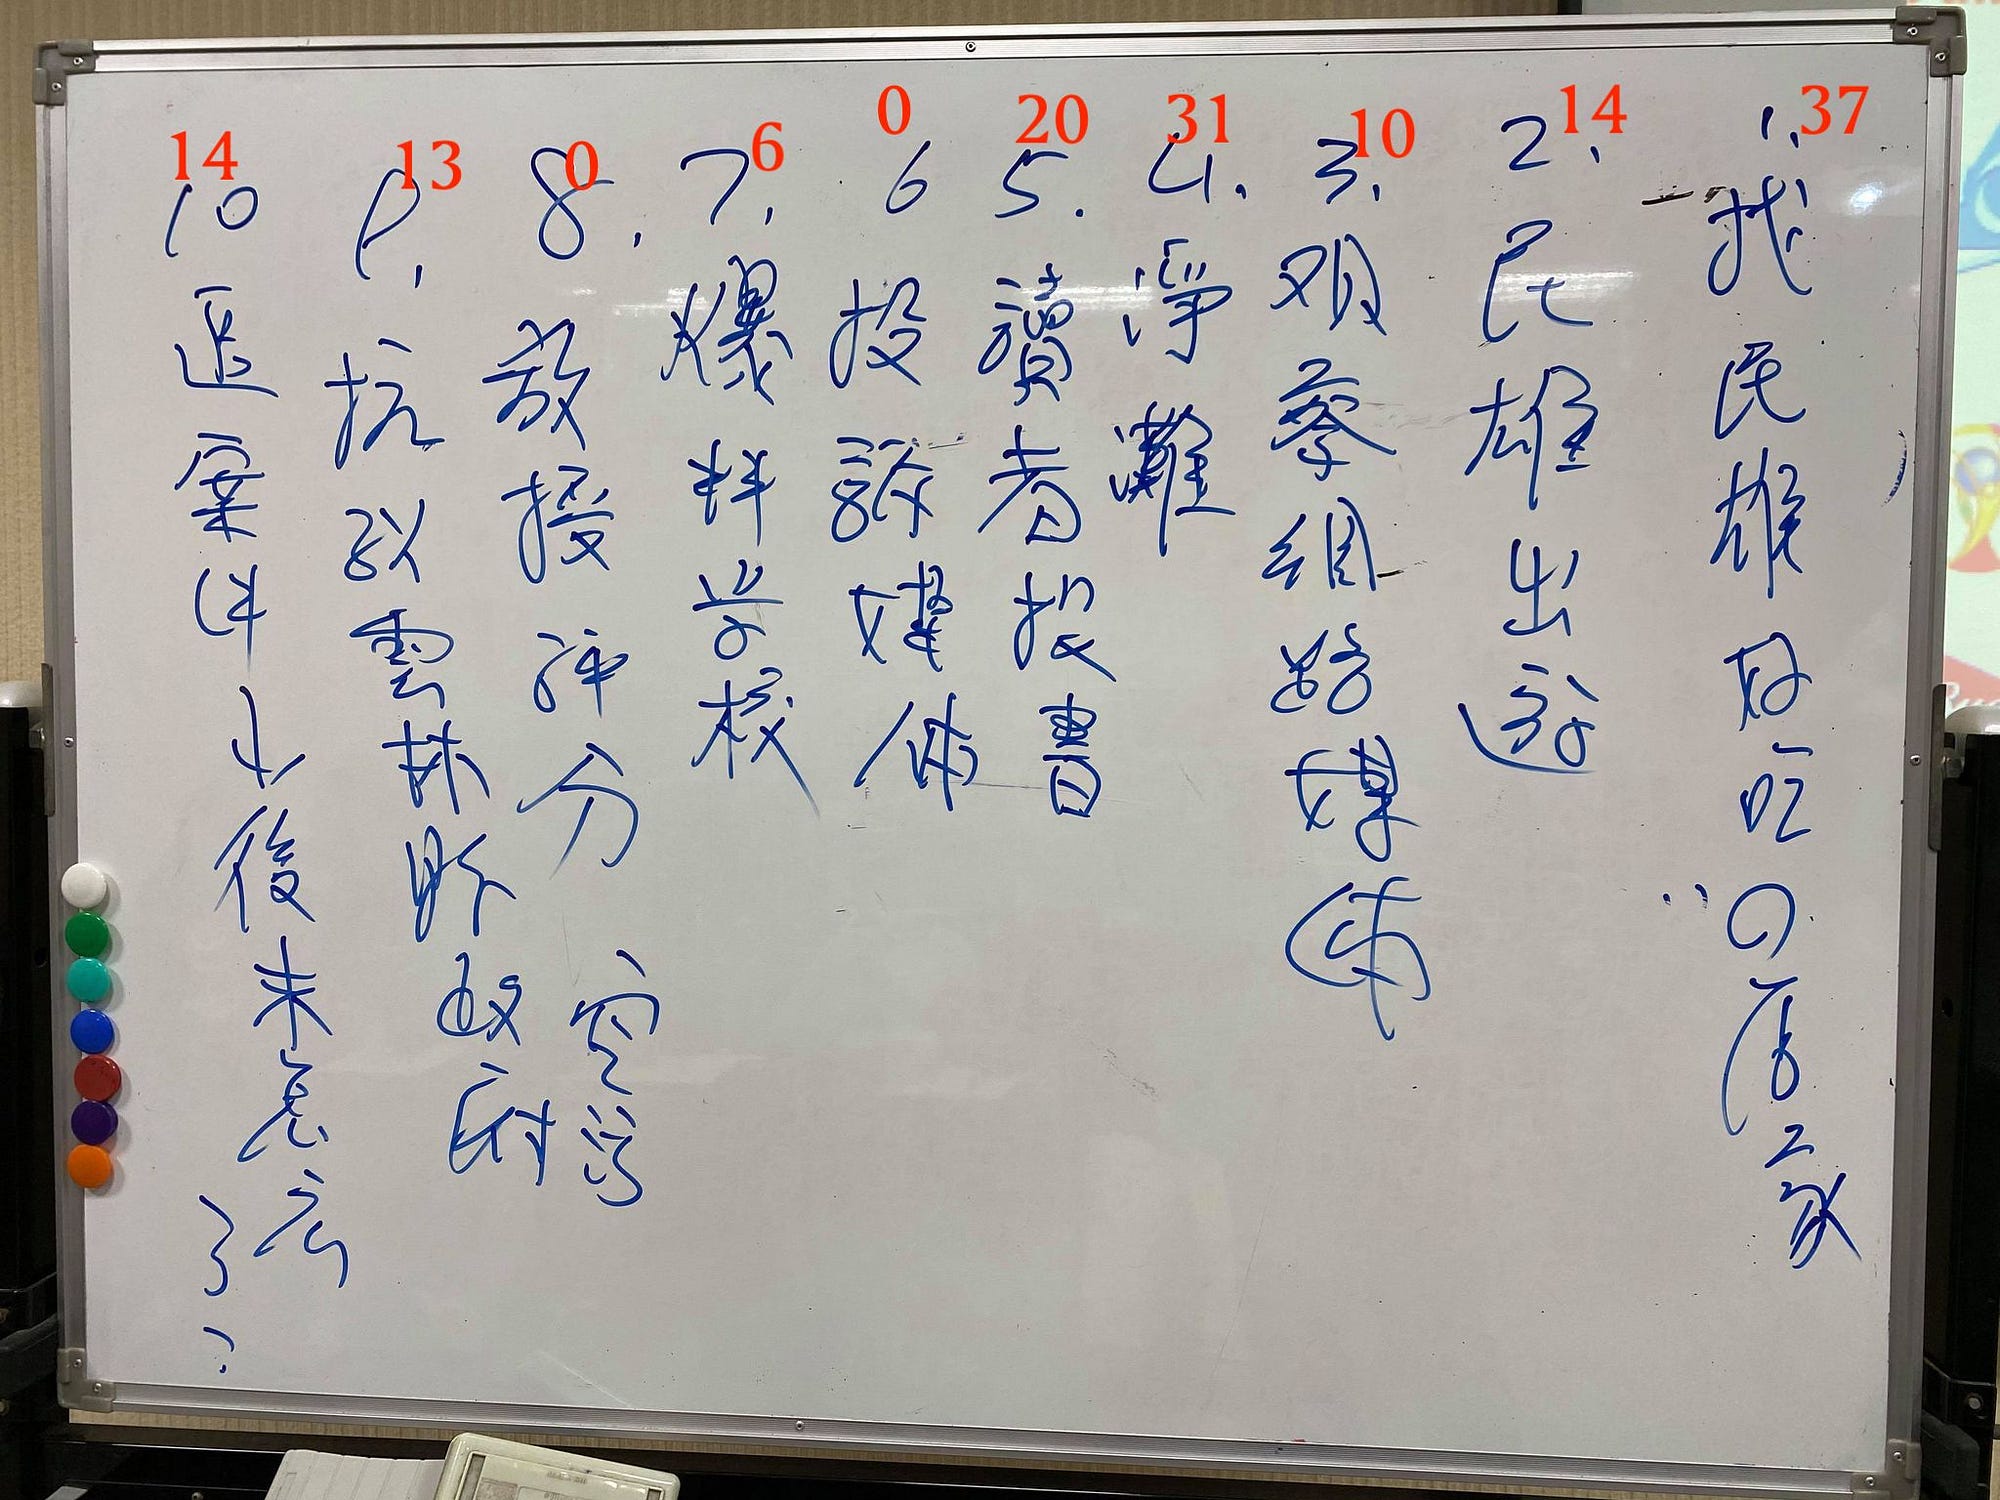 37
1. 找民雄好吃の店家
14
2. 民雄出遊
10
3. 观察網路媒体
31
4. 淨灘
20
5. 讀者投書
0
6 投訴媒体
6
7. 爆料学校
0
8. 教授評分
13
9. 抗议雲林縣政府
14
10 追案件後來怎么了?